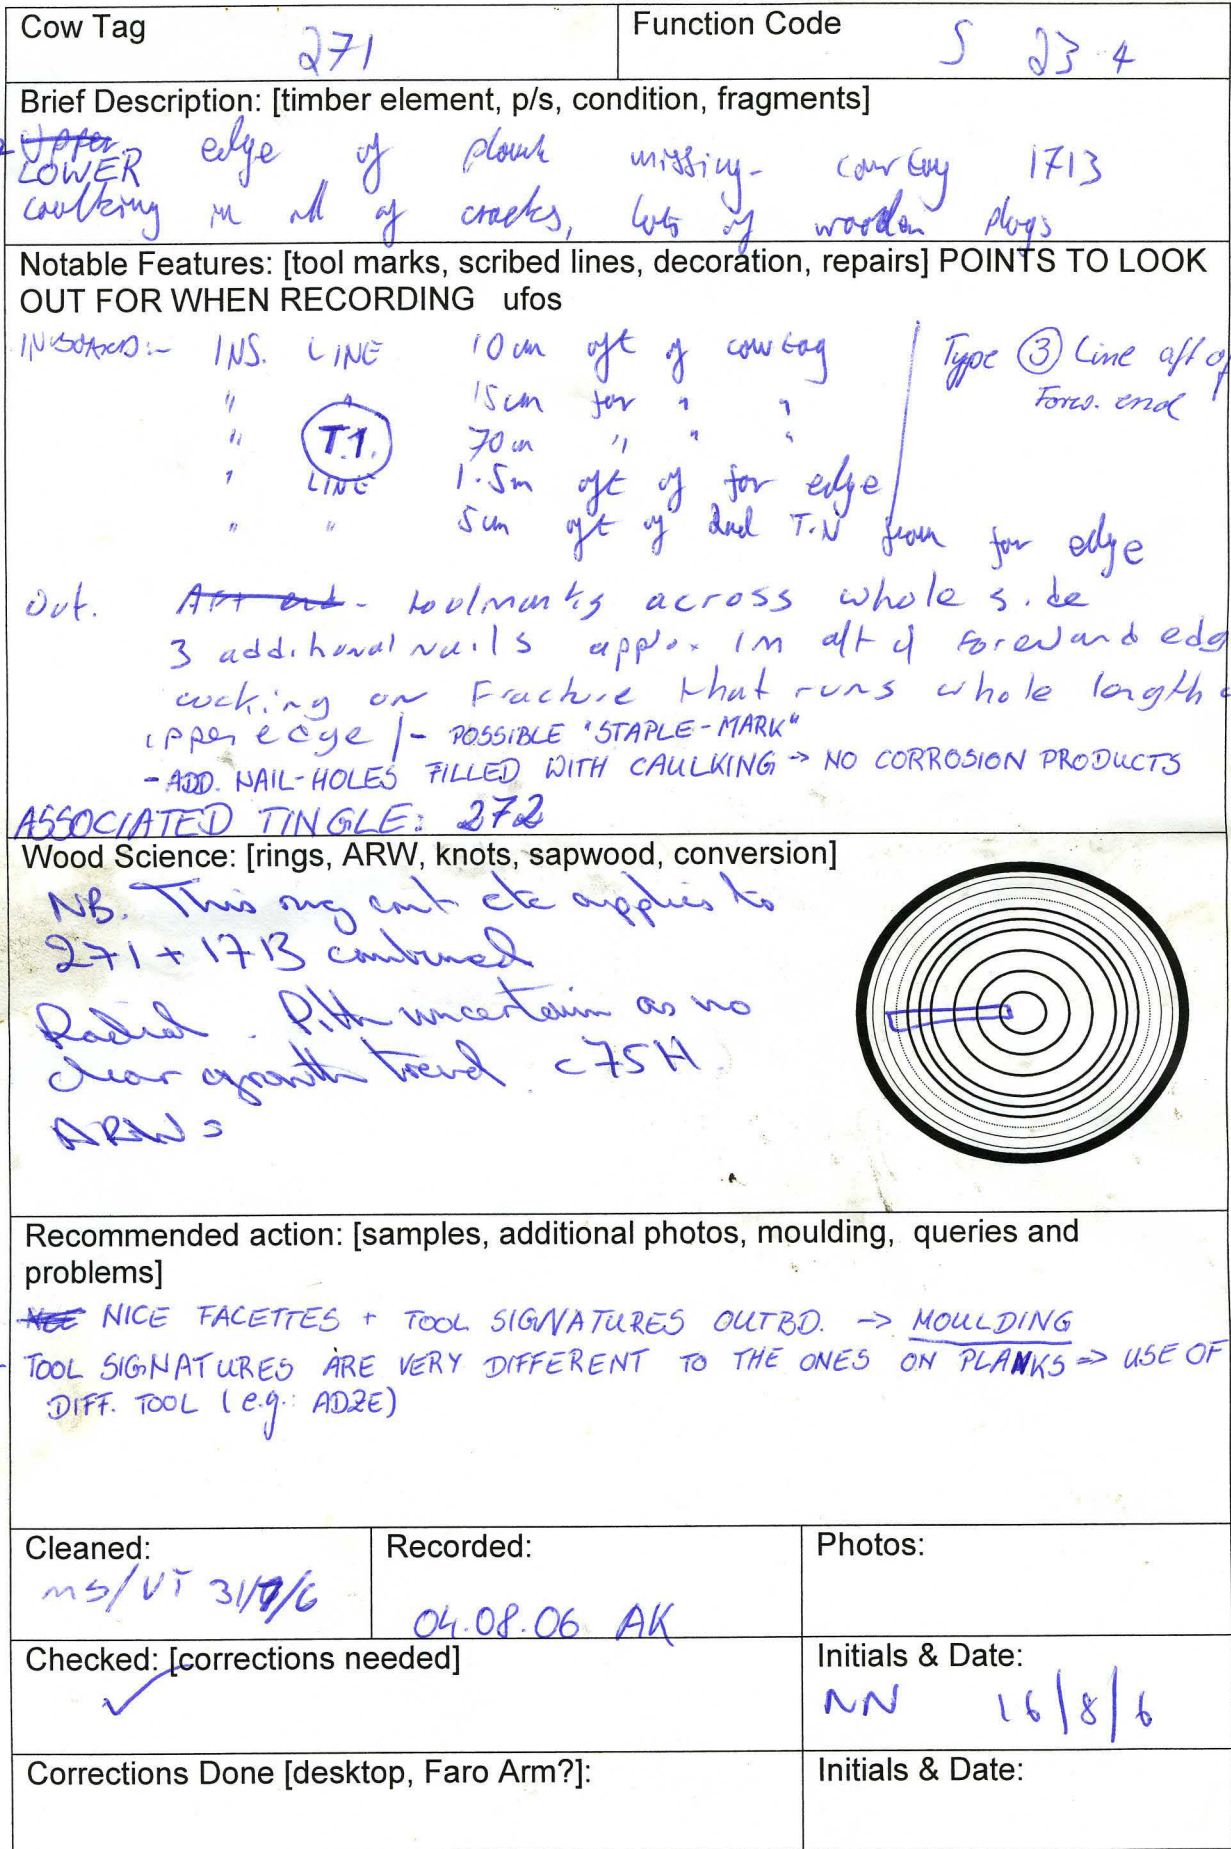 Cow Tag 271 Function Code S 23 4
Brief Description: [timber element, p/s, condition, fragments]
Upper
LOWER edge of plank missing - cow tag 1713
caulking in all of cracks, lots of wooden plugs
Notable Features: [tool marks, scribed lines, decoration, repairs] POINTS TO LOOK
OUT FOR WHEN RECORDING ufos
INBOARD:- INS. LINE 10 cm aft of cow tag Type ③ Line aft of
" " 15cm for " " Forw. end
" T.1. 70cm " " "
" LINE 1.5m aft of for edge
" " 5cm aft of 2nd T.N from for edge
Out. Aft end - toolmarks across whole side
3 additional nails approx 1m aft of foreward edg
cocking on Fracture that runs whole length
upper edge /- POSSIBLE "STAPLE-MARK"
- ADD. NAIL-HOLES FILLED WITH CAULKING -> NO CORROSION PRODUCTS
ASSOCIATED TINGLE: 272
Wood Science: [rings, ARW, knots, sapwood, conversion]
NB. This ring count etc applies to
271 + 1713 combined
Radial. Pith uncertain as no
clear growth trend. c75H.
ARW =
Recommended action: [samples, additional photos, moulding, queries and
problems]
NICE FACETTES + TOOL SIGNATURES OUTBD. -> MOULDING
- TOOL SIGNATURES ARE VERY DIFFERENT TO THE ONES ON PLANKS => USE OF
DIFF. TOOL (e.g.: ADZE)
Cleaned: Recorded: Photos:
MS/VT 31/7/6
04.08.06 AK
Checked: [corrections needed] Initials & Date:
✓ NN 16/8/6
Corrections Done [desktop, Faro Arm?]: Initials & Date: